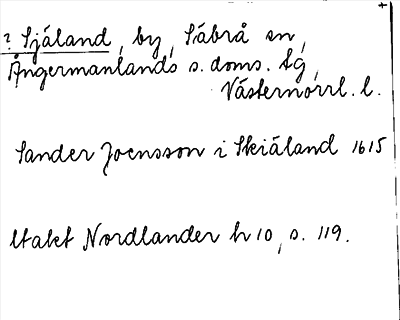 ? Själand, by, Säbrå sn,
Ångermanlands s. doms. tg,
Västernorrl. l.
Sander Joensson i Skiäland 1615
Utalet Nordlander h 10, s. 119.